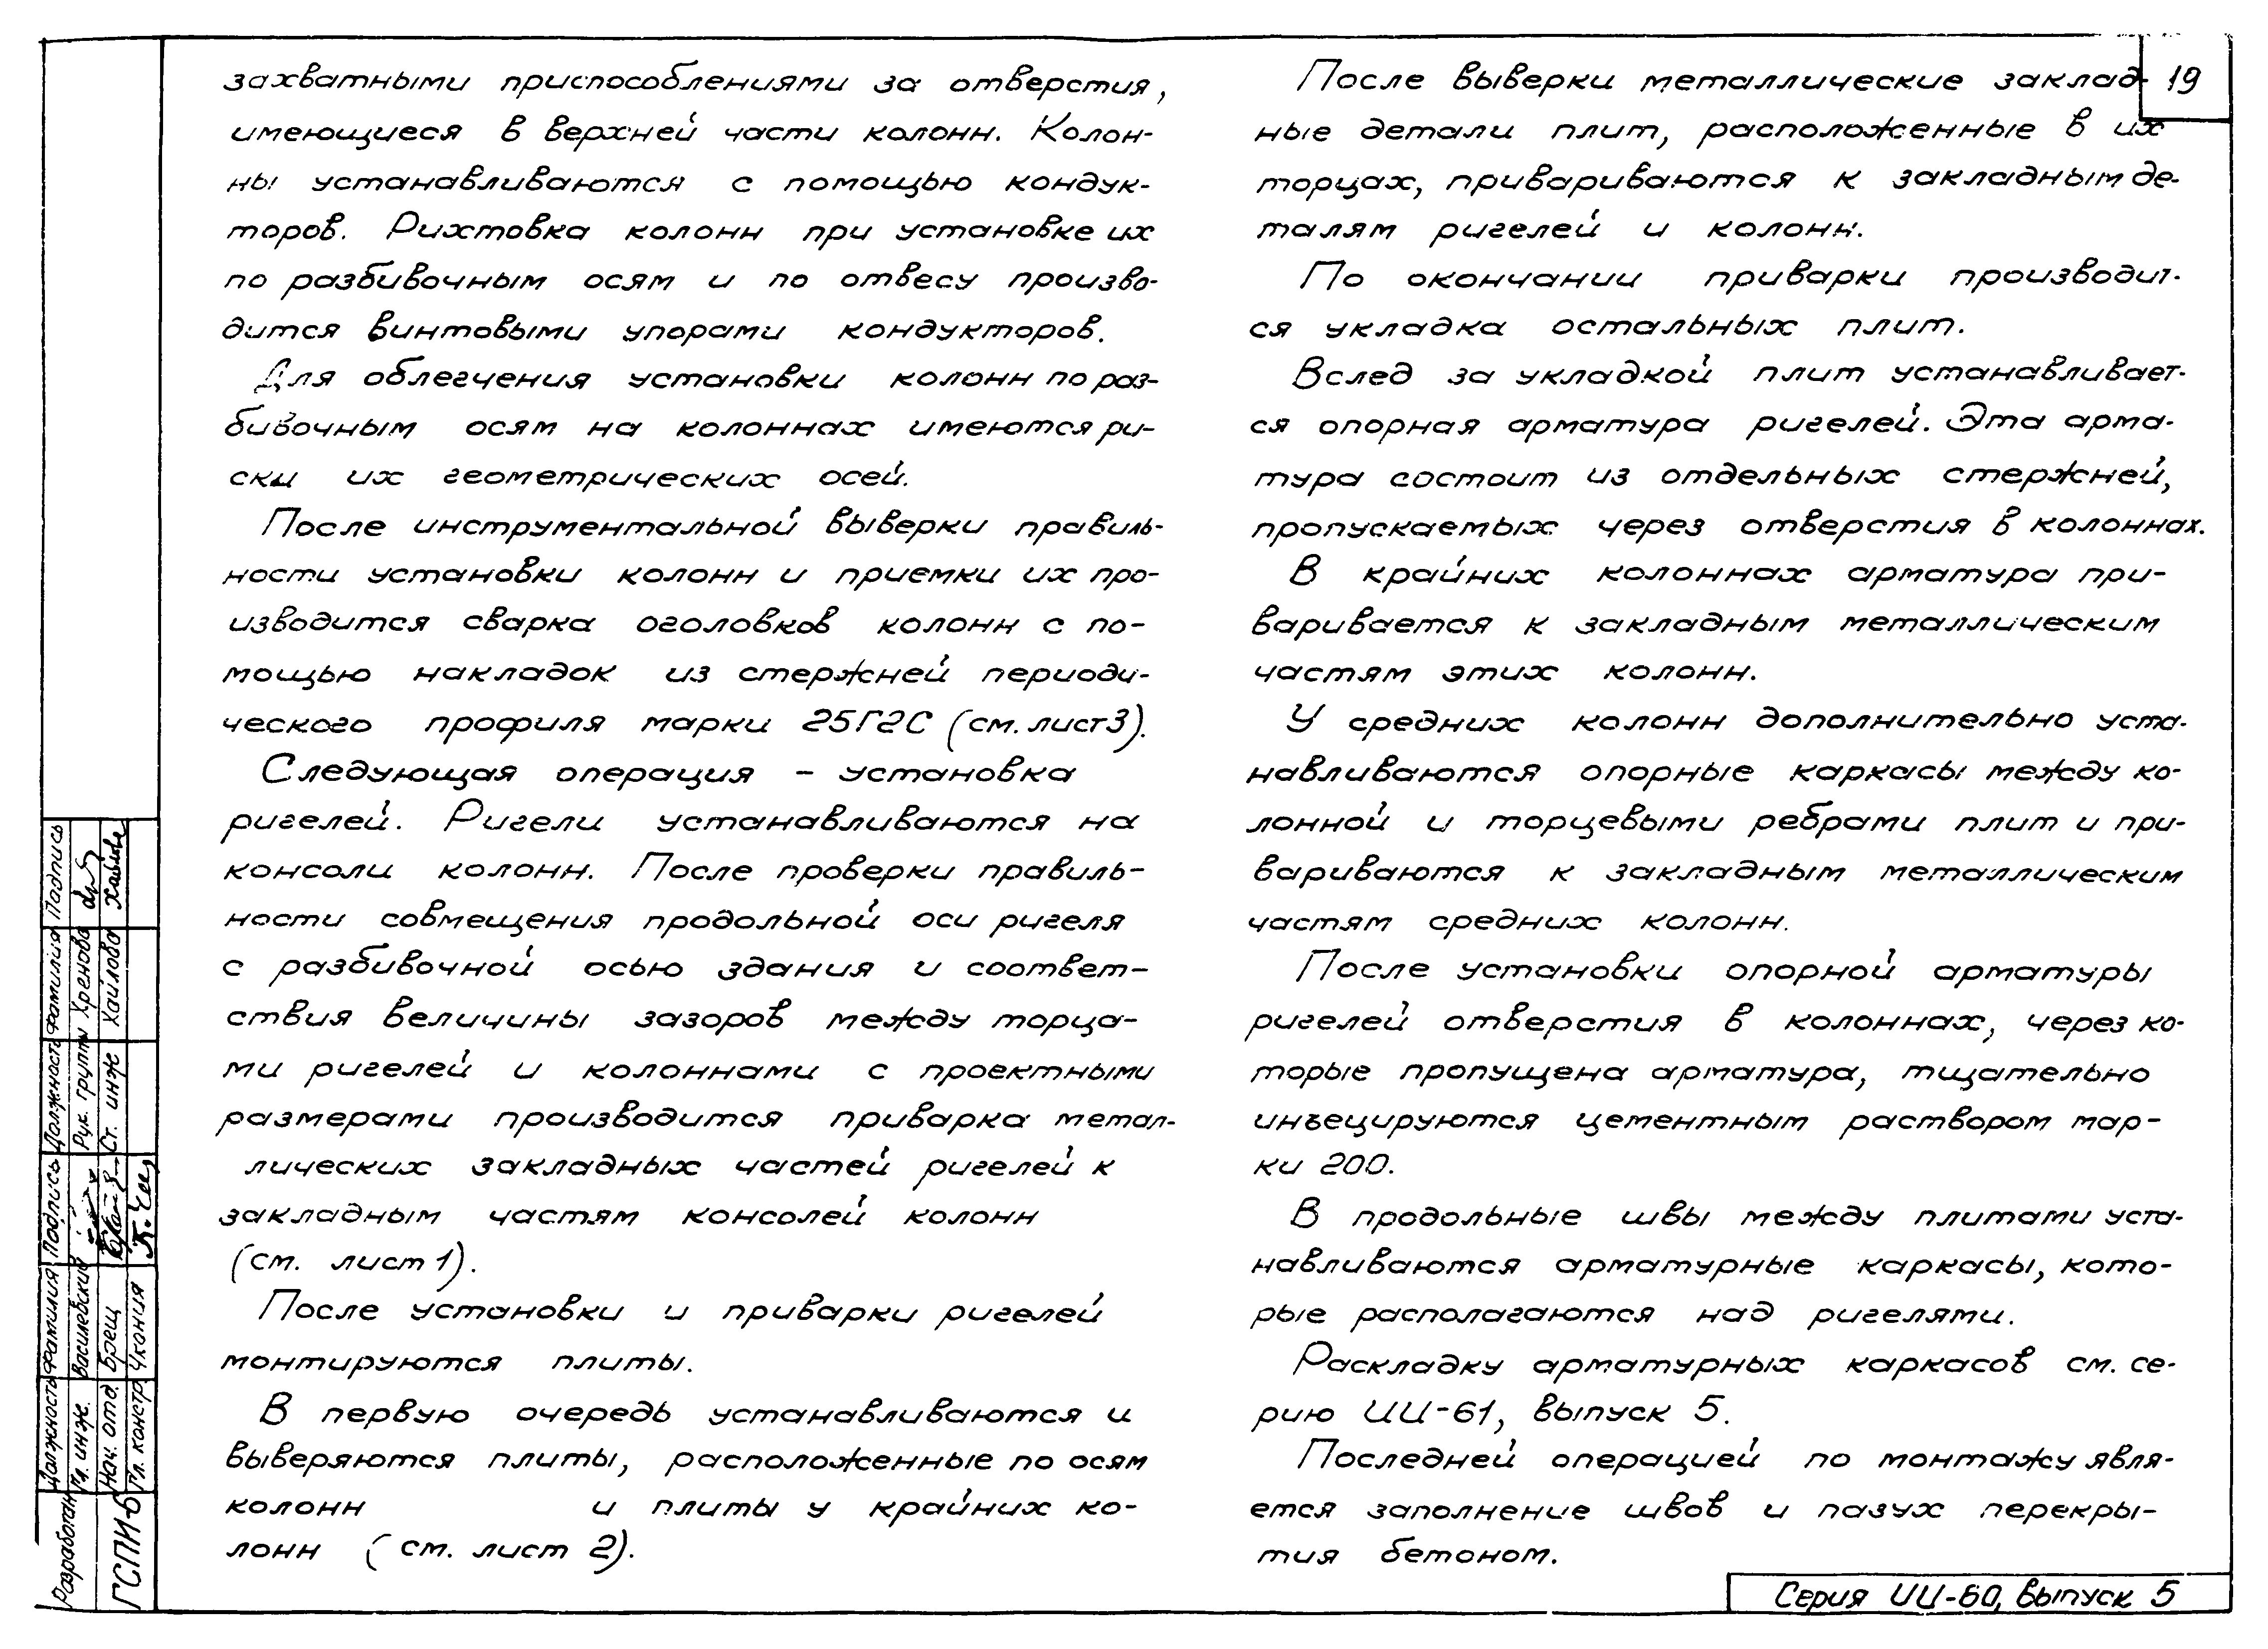 захватными приспособлениями за отверстия,
имеющиеся в верхней части колонн. Колон-
ны устанавливаются с помощью кондук-
торов. Рихтовка колонн при установке их
по разбивочным осям и по отвесу произво-
дится винтовыми упорами кондукторов.
Для облегчения установки колонн по раз-
бивочным осям на колоннах имеются ри-
ски их геометрических осей.
После инструментальной выверки правиль-
ности установки колонн и приемки их про-
изводится сварка оголовков колонн с по-
мощью накладок из стержней периоди-
ческого профиля марки 25Г2С (см. лист 3).
Следующая операция - установка
ригелей. Ригели устанавливаются на
консоли колонн. После проверки правиль-
ности совмещения продольной оси ригеля
с разбивочной осью здания и соответ-
ствия величины зазоров между торца-
ми ригелей и колоннами с проектными
размерами производится приварка метал-
лических закладных частей ригелей к
закладным частям консолей колонн
(см. лист 1).
После установки и приварки ригелей
монтируются плиты.
В первую очередь устанавливаются и
выверяются плиты, расположенные по осям
колонн и плиты у крайних ко-
лонн (см. лист 2).
После выверки металлические заклад-
ные детали плит, расположенные в их
торцах, привариваются к закладным де-
талям ригелей и колонн.
По окончании приварки производит-
ся укладка остальных плит.
Вслед за укладкой плит устанавливает-
ся опорная арматура ригелей. Эта арма-
тура состоит из отдельных стержней,
пропускаемых через отверстия в колоннах.
В крайних колоннах арматура при-
варивается к закладным металлическим
частям этих колонн.
У средних колонн дополнительно уста-
навливаются опорные каркасы между ко-
лонной и торцевыми ребрами плит и при-
вариваются к закладным металлическим
частям средних колонн.
После установки опорной арматуры
ригелей отверстия в колоннах, через ко-
торые пропущена арматура, тщательно
инъецируются цементным раствором мар-
ки 200.
В продольные швы между плитами уста-
навливаются арматурные каркасы, кото-
рые располагаются над ригелями.
Раскладку арматурных каркасов см. се-
рию ИИ-61, выпуск 5.
Последней операцией по монтажу явля-
ется заполнение швов и пазух перекры-
тия бетоном.
19
Серия ИИ-60, выпуск 5
Разработан
ГСПИ-6
Должность Фамилия Подпись Должность Фамилия Подпись
Гл. инж. Василевский Рук. группы Хренова
Нач. отд. Брещ Ст. инж Хайлова
Гл. констр. Чкония